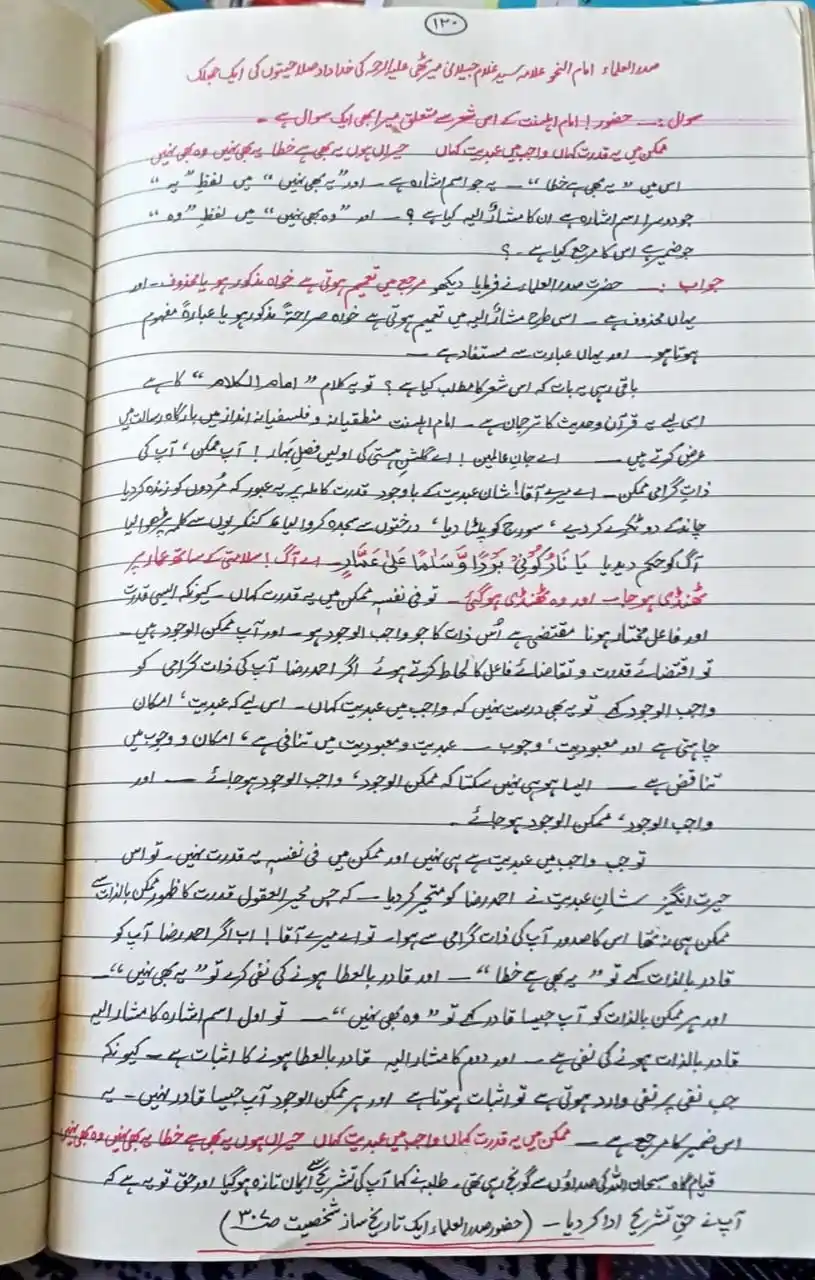 ۱۳۰
صدرالعلماء امام النحو علامہ سید غلام جیلانی میرٹھی علیہ الرحمہ کی خداداد صلاحیتوں کی ایک جھلک
سوال :۔ حضور! امام اہلسنت کے اس شعر سے متعلق میرا بھی ایک سوال ہے ۔
ممکن میں یہ قدرت کہاں واجب میں عبدیت کہاں حیراں ہوں یہ بھی ہے خطا یہ بھی نہیں وہ بھی نہیں
اس میں ”یہ بھی ہے خطا“ ۔ یہ جو اسم اشارہ ہے ۔ اور ”یہ بھی نہیں“ میں لفظِ ”یہ“
جو دوسرا اسم اشارہ ہے ان کا مشارٌ الیہ کیا ہے ؟ ۔ اور ”وہ بھی نہیں“ میں لفظِ ”وہ“
جو ضمیر ہے اس کا مرجع کیا ہے ۔ ؟
جواب :۔ حضرت صدرالعلماء نے فرمایا دیکھو مرجع میں تعمیم ہوتی ہے خواہ مذکور ہو یا محذوف ۔ اور
یہاں محذوف ہے ۔ اسی طرح مشارٌ الیہ میں تعمیم ہوتی ہے خواہ صراحۃً مذکور ہو یا عبارۃً مفہوم
ہوتا ہو ۔ اور یہاں عبارت سے مستفاد ہے ۔
باقی رہی یہ بات کہ اس شعر کا مطلب کیا ہے ؟ تو یہ کلام ”امام الکلام“ کا ہے
اسی لیے یہ قرآن و حدیث کا ترجمان ہے ۔ امام اہلسنت منطقیانہ و فلسفیانہ انداز میں بارگاہ رسالت میں
عرض کرتے ہیں ۔ اے جانِ عالمین ! اے گلشنِ ہستی کی اولیں فصلِ بہار ! آپ ممکن ، آپ کی
ذاتِ گرامی ممکن ۔ اے میرے آقا! شان عبدیت کے باوجود قدرت کاملہ پر یہ عبور کہ مُردوں کو زندہ کردیا
چاند کے دو ٹکڑے کردیے ، سورج کو پلٹا دیا ، درختوں سے سجدہ کروا لیا ، کنکریوں سے کلمہ پڑھوا لیا
آگ کو حکم دیدیا یَا نَارُ کُوْنِیْ بَرْدًا وَّسَلَامًا عَلٰی عَمَّارٍ ۔ اے آگ ! سلامتی کے ساتھ عمار پر
ٹھنڈی ہوجا ۔ اور وہ ٹھنڈی ہوگئی ۔ تو فی نفسہٖ ممکن میں یہ قدرت کہاں ۔ کیونکہ ایسی قدرت
اور فاعل مختار ہونا مقتضی ہے اُس ذات کا جو واجب الوجود ہو ۔ اور آپ ممکن الوجود ہیں ۔
تو اقتضائے قدرت و تقاضائے فاعل کا لحاظ کرتے ہوئے اگر احمد رضا آپ کی ذات گرامی کو
واجب الوجود کہے تو یہ بھی درست نہیں کہ واجب میں عبدیت کہاں ۔ اس لیے کہ عبدیت ، امکان
چاہتی ہے اور معبودیت ، وجوب ۔ عبدیت و معبودیت میں تنافی ہے ، امکان و وجوب میں
تناقض ہے ۔ ایسا ہو ہی نہیں سکتا کہ ممکن الوجود ، واجب الوجود ہوجائے ۔ اور
واجب الوجود ، ممکن الوجود ہوجائے ۔
تو جب واجب میں عبدیت ہے ہی نہیں اور ممکن میں فی نفسہٖ یہ قدرت نہیں ۔ تو اس
حیرت انگیز شانِ عبدیت نے احمد رضا کو متحیر کردیا ۔ کہ جس محیر العقول قدرت کا ظہور ممکن بالذات سے
ممکن ہی نہ تھا اس کا صدور آپ کی ذات گرامی سے ہوا ۔ تو اے میرے آقا ! اب اگر احمد رضا آپ کو
قادر بالذات کہے تو ”یہ بھی ہے خطا“ ۔ اور قادر بالعطا ہونے کی نفی کرے تو ”یہ بھی نہیں“ ۔
اور ہر ممکن بالذات کو آپ جیسا قادر کہے تو ”وہ بھی نہیں“ ۔ تو اول اسم اشارہ کا مشار الیہ
قادر بالذات ہونے کی نفی ہے ۔ اور دوم کا مشار الیہ قادر بالعطا ہونے کا اثبات ہے ۔ کیونکہ
جب نفی پر نفی وارد ہوتی ہے تو اثبات ہوتا ہے اور ہر ممکن الوجود آپ جیسا قادر نہیں ۔ یہ
اس ضمیر کا مرجع ہے ۔ ممکن میں یہ قدرت کہاں واجب میں عبدیت کہاں حیراں ہوں یہ بھی ہے خطا یہ بھی نہیں وہ بھی نہیں
قیام گاہ سبحان اللہ کی صداؤں سے گونج رہی تھی ۔ طلبہ نے کہا آپ کی تشریح سے ایمان تازہ ہوگیا اور حق تو یہ ہے کہ
آپ نے حقِ تشریح ادا کردیا ۔ (حضور صدرالعلماء ایک تاریخ ساز شخصیت صـ ۳۰۷)